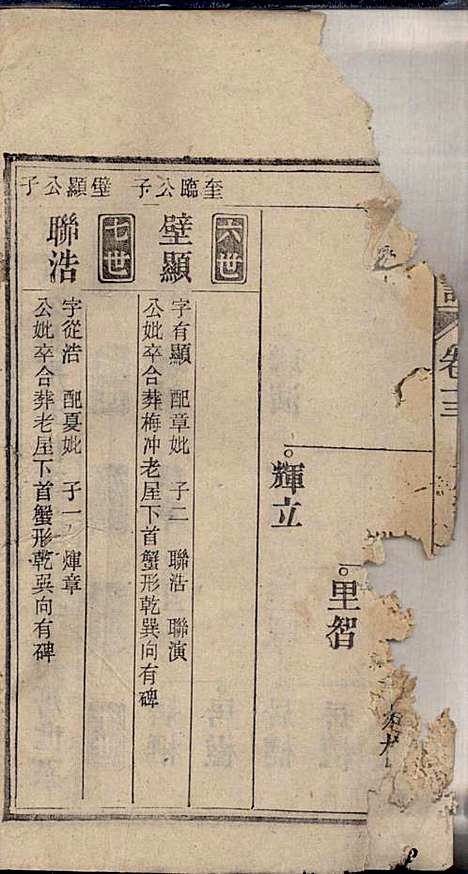 卷三
里智
輝立
奎臨公子
六世
壁顯
字有顯 配章妣 子二 聯浩 聯演
公妣卒合葬梅冲老屋下首蟹形乾巽向有碑
璧顯公子
七世
聯浩
字從浩 配夏妣 子一 煇章
公妣卒合葬老屋下首蟹形乾巽向有碑